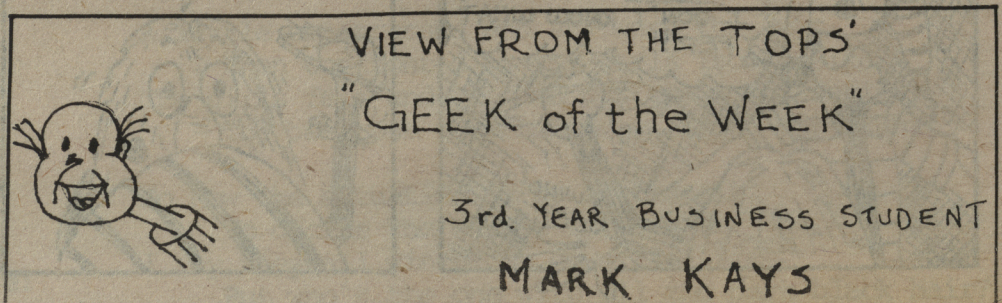 VIEW FROM THE TOPS'
"GEEK of the WEEK"
3rd. YEAR BUSINESS STUDENT
MARK KAYS